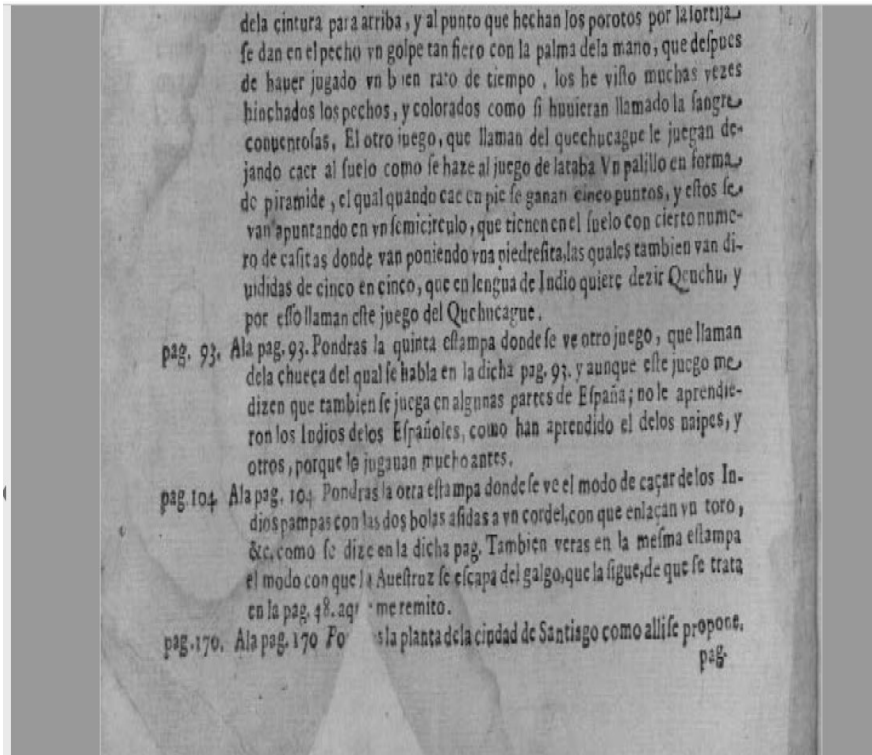 dela cintura para arriba, y al punto que hechan los porotos por la ſortija
ſe dan en el pecho vn golpe tan fiero con la palma dela mano, que deſpues
de hauer jugado vn bien rato de tiempo, los he viſto muchas vezes
hinchados los pechos, y colorados como ſi huuieran llamado la ſangre
conuentoſas, El otro juego, que llaman del quechucague le juegan de-
jando caer al ſuelo como ſe haze al juego de lataba Vn palillo en forma
de piramide, el qual quando cae en pie ſe ganan cinco puntos, y eſtos ſe
van apuntando en vn ſemicirculo, que tienen en el ſuelo con cierto nume-
ro de caſitas donde van poniendo vna piedreſita, las quales tambien van di-
uididas de cinco en cinco, que en lengua de Indio quiere dezir Quuchu, y
por eſſo llaman eſte juego del Quchucague.
pag. 93. Ala pag. 93. Pondras la quinta eſtampa donde ſe ve otro juego, que llaman
dela chueca del qual ſe habla en la dicha pag. 93. y aunque eſte juego me
dizen que tambien ſe juega en algunas partes de Eſpaña; no le aprendie-
ron los Indios delos Eſpañoles, como han aprendido el delos naipes, y
otros, porque le jugauan mucho antes.
pag. 104 Ala pag. 104 Pondras la otra eſtampa donde ſe ve el modo de caçar delos In-
dios pampas con las dos bolas aſidas a vn cordel, con que enlaçan vn toro,
&c. como ſe dize en la dicha pag. Tambien veras en la meſma eſtampa
el modo con que la Aueſtruz ſe eſcapa del galgo, que la ſigue, de que ſe trata
en la pag. 48. me remito.
pag. 170. Ala pag. 170 la planta dela ciudad de Santiago como alli ſe propone.
pag.